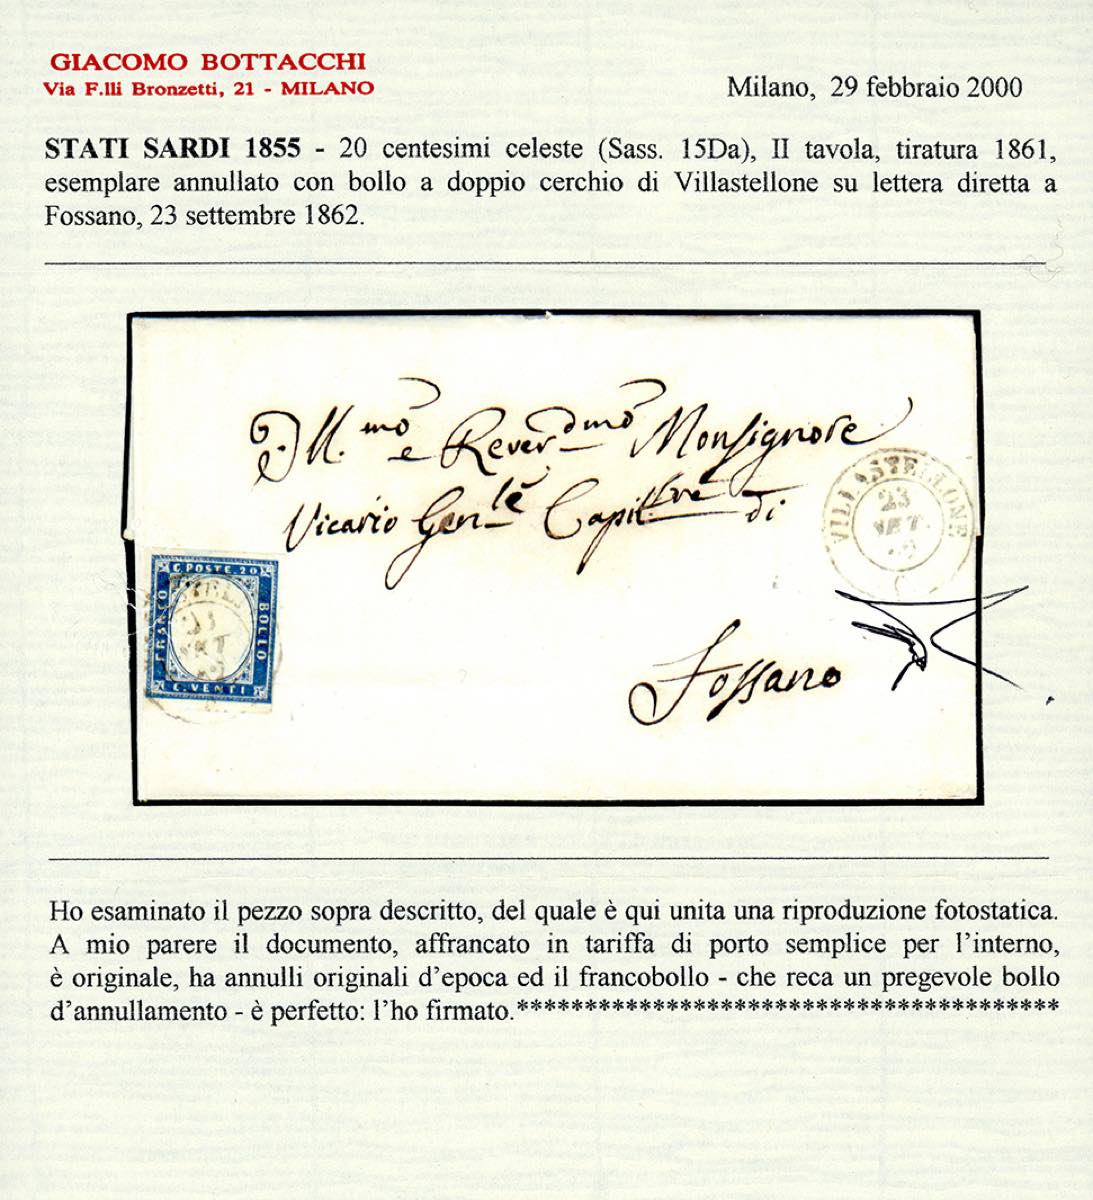 GIACOMO BOTTACCHI
Via F.lli Bronzetti, 21 - MILANO
Milano, 29 febbraio 2000
STATI SARDI 1855 - 20 centesimi celeste (Sass. 15Da), II tavola, tiratura 1861,
esemplare annullato con bollo a doppio cerchio di Villastellone su lettera diretta a
Fossano, 23 settembre 1862.
Ill.mo e Reverdmo Monsignore
Vicario Genle Capit di
VILLASTELLONE
23
SET
62
C. POSTE. 20
FRANCO
BOLLO
C. VENTI
Fossano
Ho esaminato il pezzo sopra descritto, del quale è qui unita una riproduzione fotostatica.
A mio parere il documento, affrancato in tariffa di porto semplice per l'interno,
è originale, ha annulli originali d'epoca ed il francobollo - che reca un pregevole bollo
d'annullamento - è perfetto: l'ho firmato.****************************************